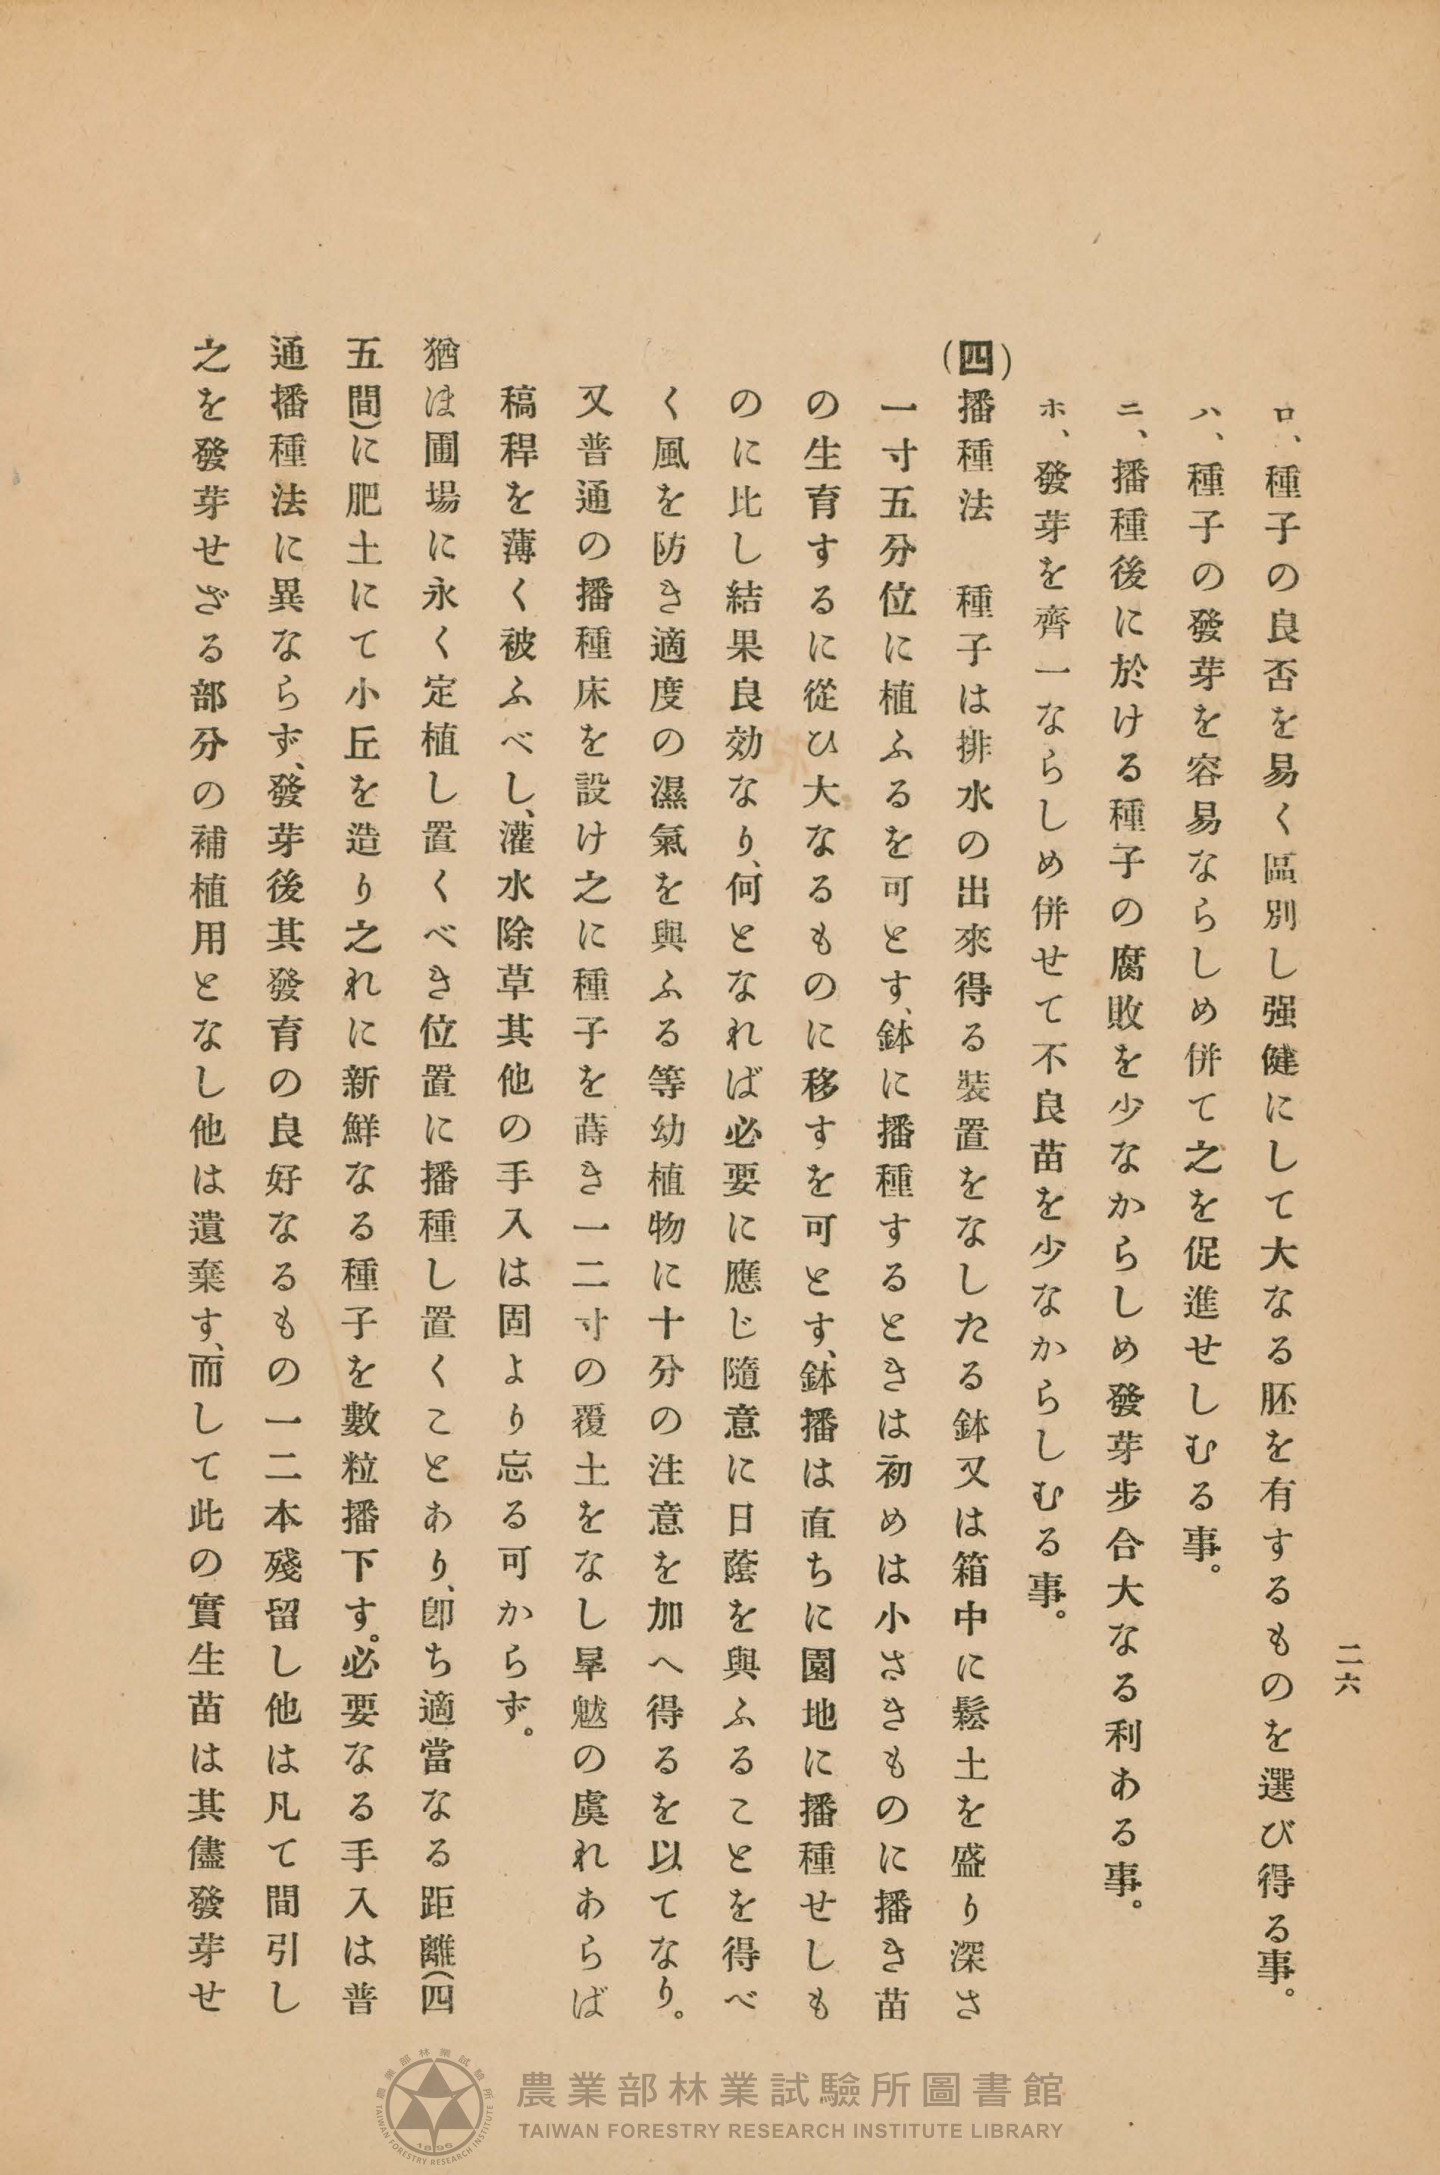 二六
ロ、種子の良否を易く區別し强健にして大なる胚を有するものを選び得る事。
ハ、種子の發芽を容易ならしめ併て之を促進せしむる事。
ニ、播種後に於ける種子の腐敗を少なからしめ發芽步合大なる利ある事。
ホ、發芽を齊一ならしめ併せて不良苗を少なからしむる事。
(四)播種法　種子は排水の出來得る裝置をなしたる鉢又は箱中に鬆土を盛り深さ
一寸五分位に植ふるを可とす、鉢に播種するときは初めは小さきものに播き苗
の生育するに從ひ大なるものに移すを可とす、鉢播は直ちに園地に播種せしも
のに比し結果良効なり、何となれば必要に應じ隨意に日蔭を與ふることを得べ
く風を防き適度の濕氣を與ふる等幼植物に十分の注意を加へ得るを以てなり。
又普通の播種床を設け之に種子を蒔き一二寸の覆土をなし旱魃の虞れあらば
稿稈を薄く被ふべし、灌水除草其他の手入は固より忘る可からず。
猶ほ圃場に永く定植し置くべき位置に播種し置くことあり、卽ち適當なる距離(四
五間)に肥土にて小丘を造り之れに新鮮なる種子を數粒播下す。必要なる手入は普
通播種法に異ならず、發芽後其發育の良好なるもの一二本殘留し他は凡て間引し
之を發芽せざる部分の補植用となし他は遺棄す、而して此の實生苗は其儘發芽せ
農業部林業試驗所圖書館
TAIWAN FORESTRY RESEARCH INSTITUTE LIBRARY
農業部林業試驗所
TAIWAN FORESTRY RESEARCH INSTITUTE
1896